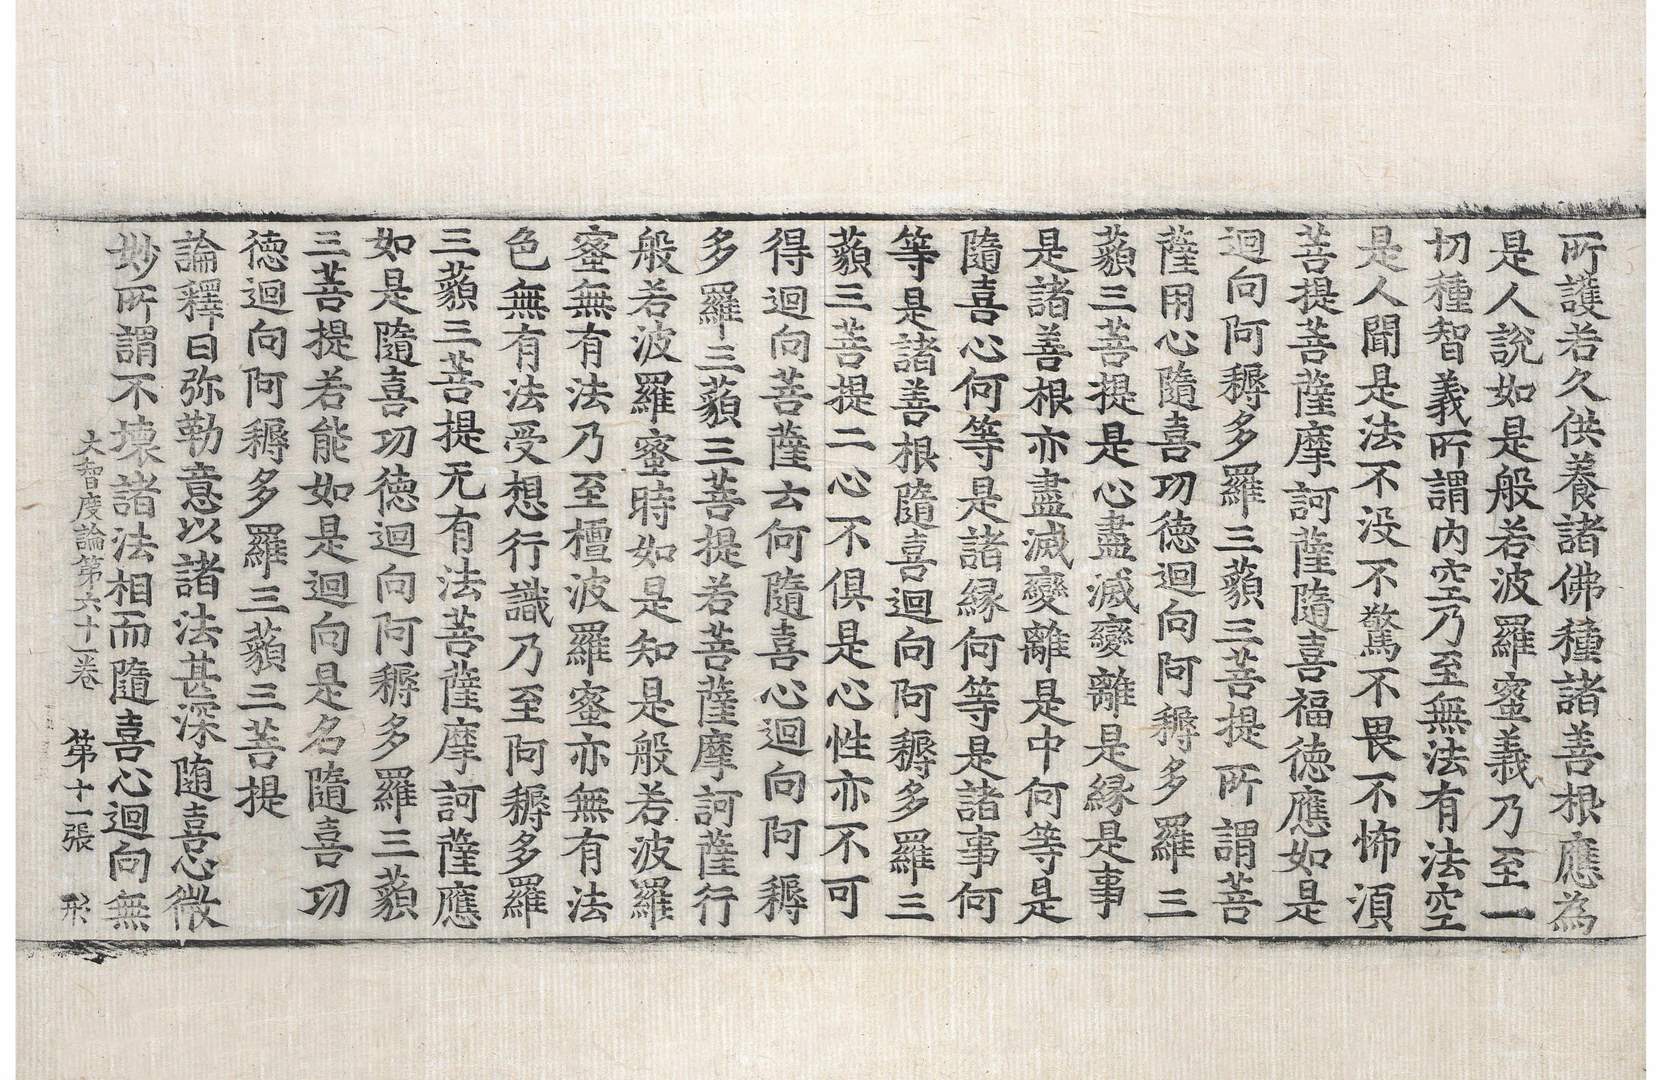 所護若久供養諸佛種諸善根應為
是人說如是般若波羅蜜義乃至一
切種智義所謂内空乃至無法有法空
是人聞是法不没不驚不畏不怖湏
菩提菩薩摩訶薩隨喜福德應如是
迴向阿耨多羅三藐三菩提所謂菩
薩用心隨喜功德迴向阿耨多羅三
藐三菩提是心盡滅變離是緣是事
是諸善根亦盡滅變離是中何等是
隨喜心何等是諸緣何等是諸事何
等是諸善根隨喜迴向阿耨多羅三
藐三菩提二心不俱是心性亦不可
得迴向菩薩云何隨喜心迴向阿耨
多羅三藐三菩提若菩薩摩訶薩行
般若波羅蜜時如是知是般若波羅
蜜無有法乃至檀波羅蜜亦無有法
色無有法受想行識乃至阿耨多羅
三藐三菩提无有法菩薩摩訶薩應
如是隨喜功德迴向阿耨多羅三藐
三菩提若能如是迴向是名隨喜功
德迴向阿耨多羅三藐三菩提
論釋曰弥勒意以諸法甚深隨喜心微
妙所謂不壞諸法相而隨喜心迴向無
大智度論第六十一卷 第十一張 形